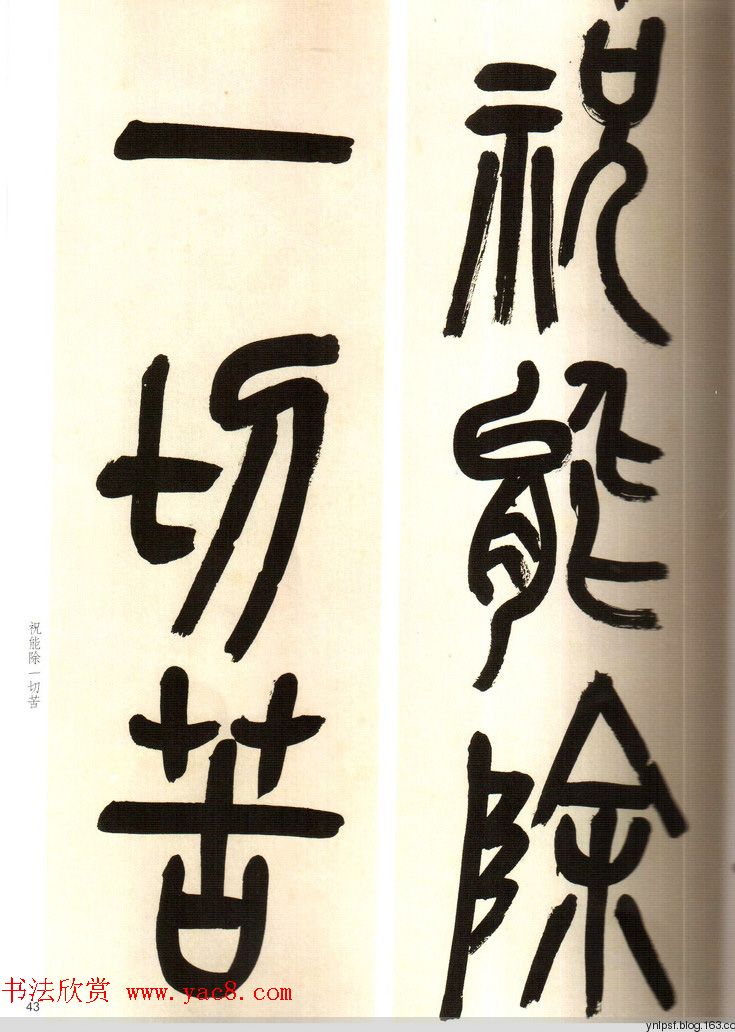 祝能除
一切苦
祝能除一切苦
书法欣赏 www.yac8.com
43
ynlpsf.blog.163.cc